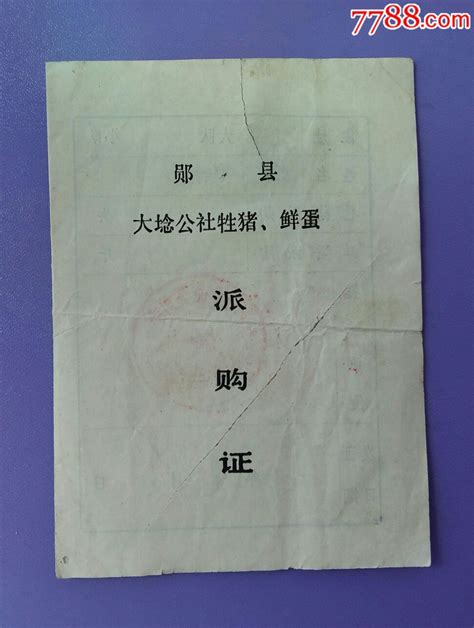 7788.com
郧 县
大埝公社牲猪、鲜蛋
派
购
证